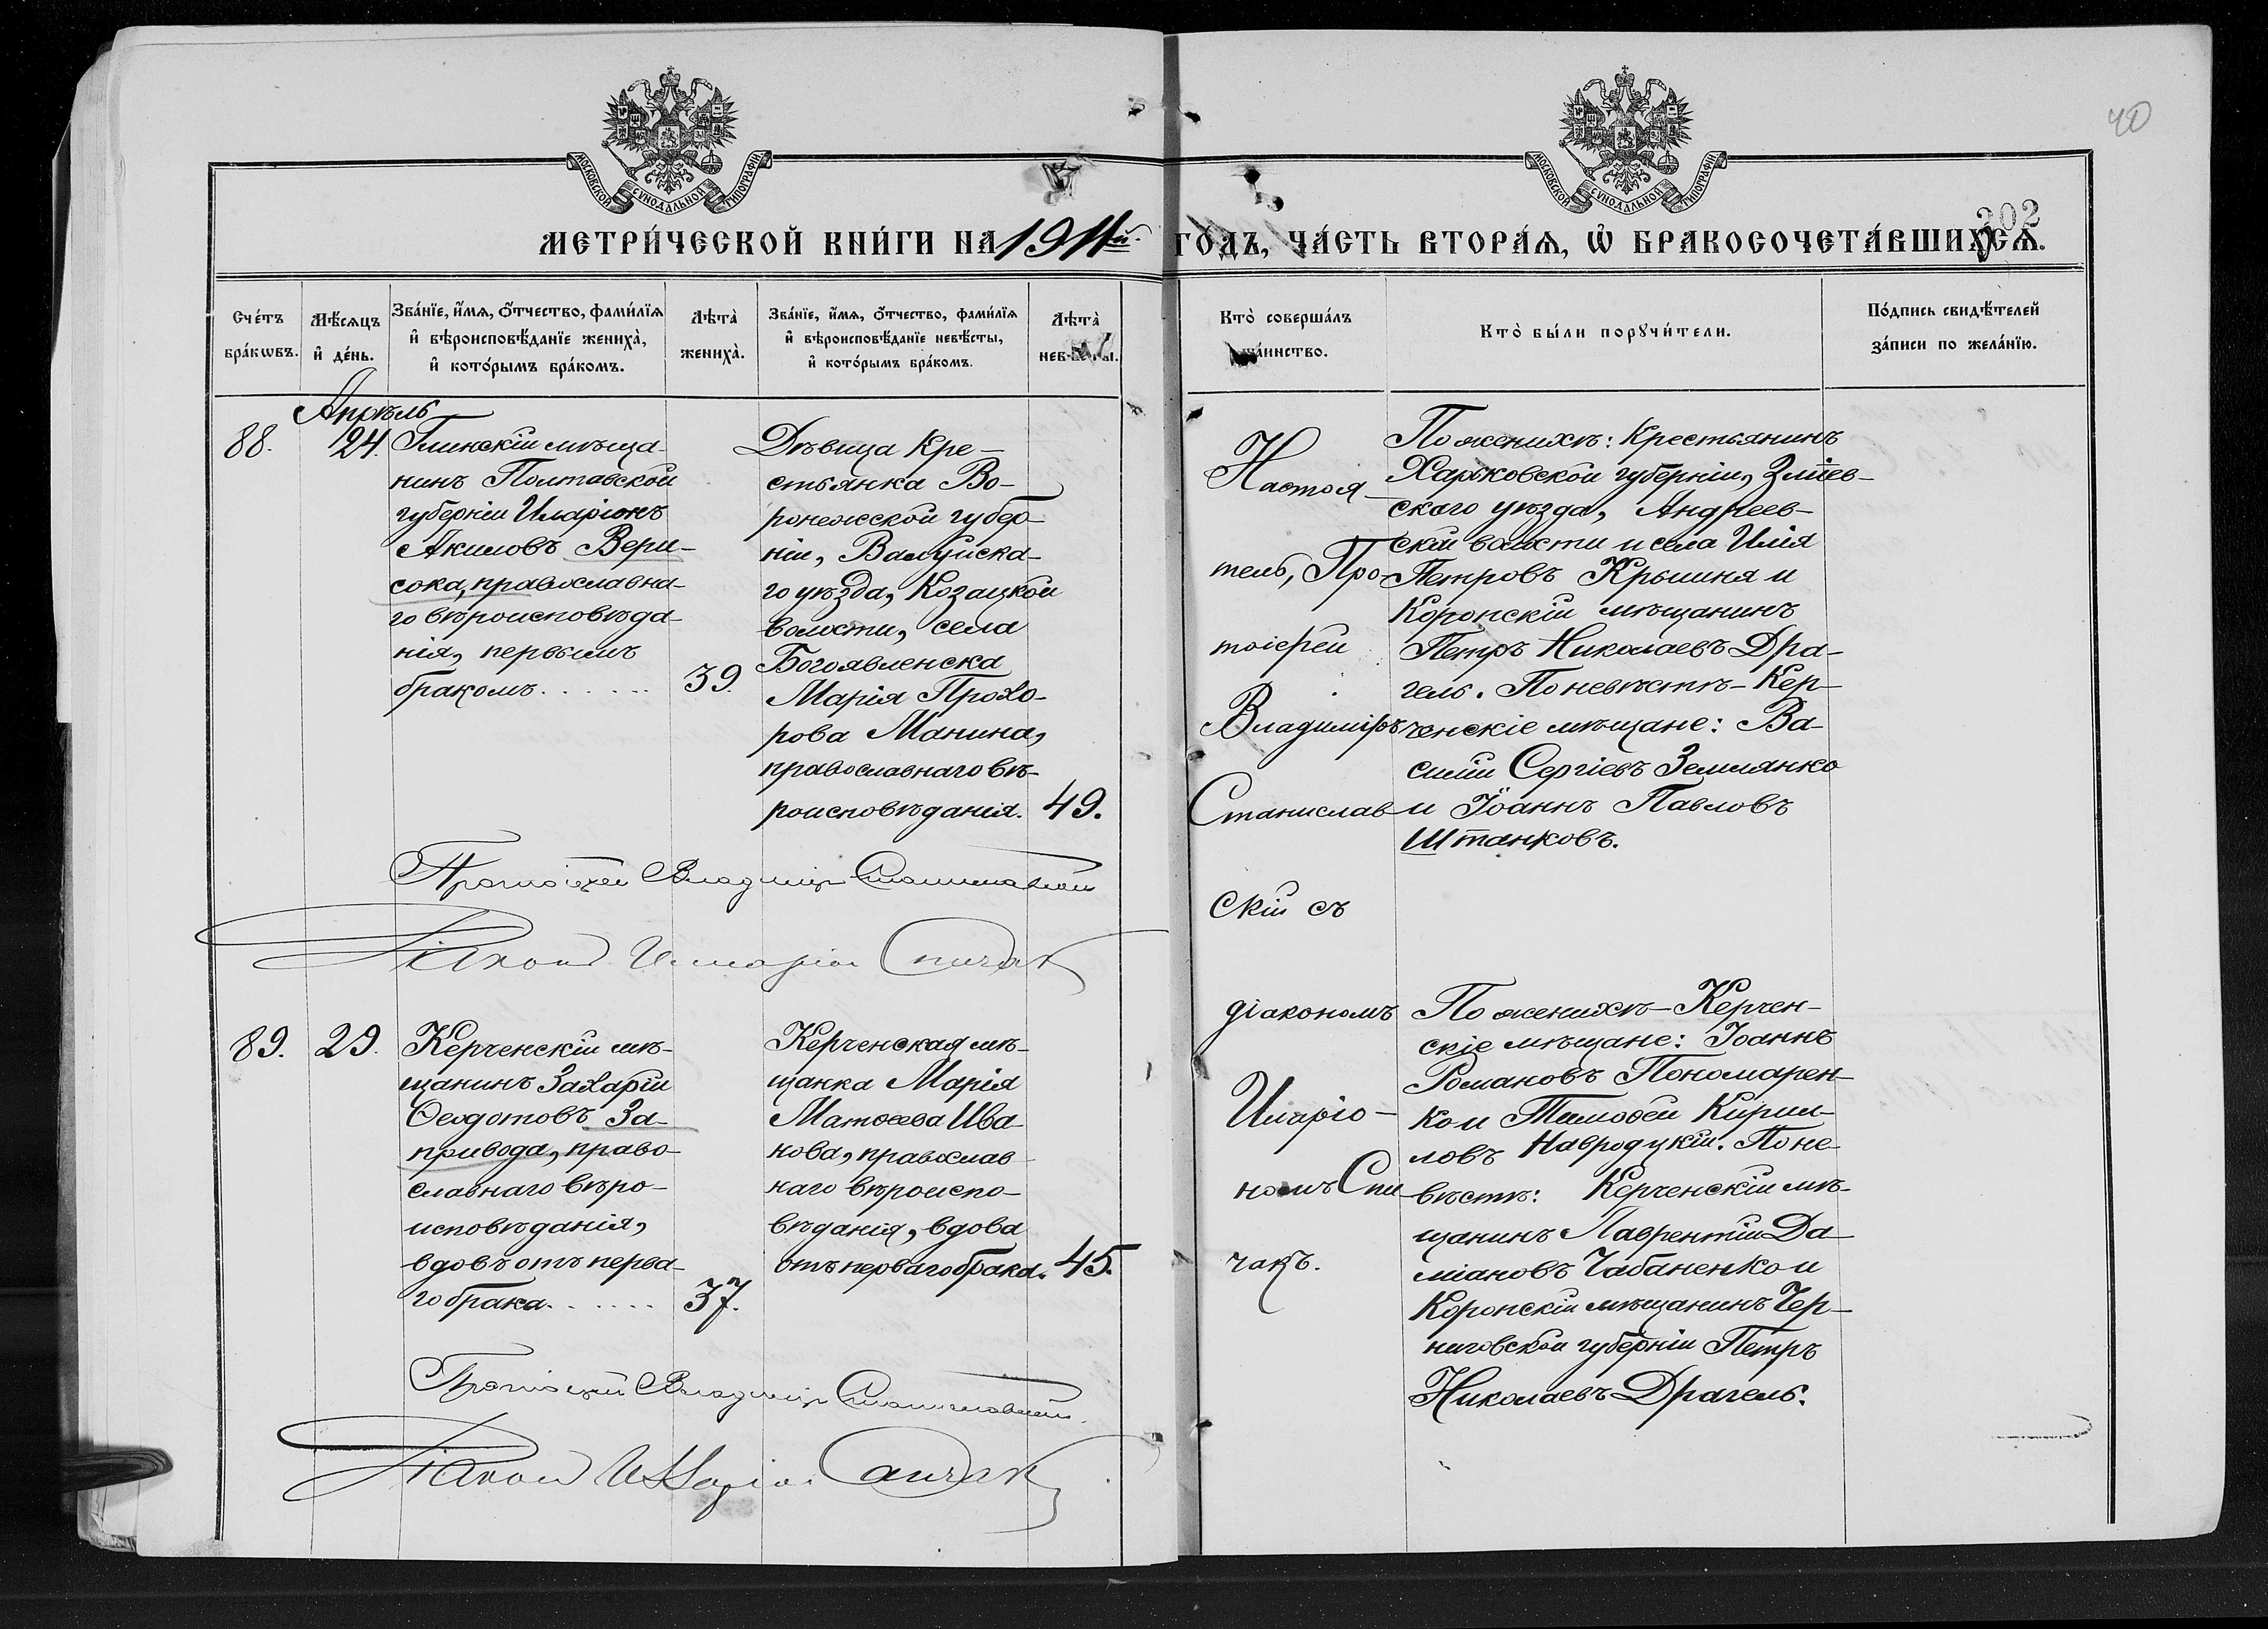 40
МОСКОВСКОЙ СѴНОДАЛЬНОЙ ТИПОГРАФІИ
МОСКОВСКОЙ СѴНОДАЛЬНОЙ ТИПОГРАФІИ
302
МЕТРИ́ЧЕСКОЙ КНИ́ГИ НА 1911й. ГО́ДЪ, ЧА́СТЬ ВТОРА́Ѧ, Ѽ БРАКОСОЧЕТА́ВШИХСѦ.
Сче́тъ бра́кѡвъ.
Мѣ́сѧцъ и҆ де́нь.
Зва́нїе, и҆́мѧ, ѻ҆́тчество, фами́лїѧ
и҆ вѣроисповѣ́данїе жениха̀,
и҆ кото́рымъ бра́комъ.
Лѣта̀ жениха̀.
Зва́нїе, и҆́мѧ, ѻ҆́тчество, фами́лїѧ
и҆ вѣроисповѣ́данїе невѣ́сты,
и҆ кото́рымъ бра́комъ.
Лѣта̀ невѣ́сты.
Кто̀ соверша́лъ
та́инство.
Кто̀ бы́ли порꙋчи́тели.
По́дпись свидѣ́телей
за́писи по жела́нїю.
Апрѣль
88.
24.
Глинскій мѣща-
нинъ Полтавской
губерніи Иларіонъ
Акиловъ Вери-
сока, православна-
го вѣроисповѣда-
нія, первымъ
бракомъ. . . . . .
39.
Дѣвица Кре-
стьянка Во-
ронежской губер-
ніи, Валуйска-
го уѣзда, Козацкой
волости, села
Богоявленска
Марія Прохо-
рова Манина,
православнаго вѣ-
роисповѣданія.
49.
Протоіерей Владиміръ Станиславскій
Діаконъ Иларіонъ Спичакъ
Настоя-
тель, Про-
тоіерей
Владиміръ
Станислав
скій съ
діакономъ
Иларіо-
номъ Спи
чакъ.
По женихѣ: Крестьянинъ
Харьковской губерніи, Зміев-
скаго уѣзда, Андреев-
скій волости и села Илія
Петровъ Крышня и
Коропскій мѣщанинъ
Петръ Николаевъ Дра-
гель. По невѣстѣ - Кер-
ченскіе мѣщане: Ва-
силій Сергіевъ Землянко
и Іоаннъ Павловъ
Штанковъ.
89.
29.
Керченскій мѣ-
щанинъ Захарій
Ѳеодотовъ За-
привода, право-
славнаго вѣро-
исповѣданія,
вдовъ отъ перва-
го брака. . . . . .
37.
Керченская мѣ-
щанка Марія
Матѳеева Ива
нова, православ
наго вѣроиспо-
вѣданія, вдова
отъ перваго брака.
45.
Протоіерей Владиміръ Станиславскій
Діаконъ Иларіонъ Спичакъ
По женихѣ - Керчен-
скіе мѣщане: Іоаннъ
Романовъ Пономарен-
ко и Тимоѳей Кирил-
ловъ Навродцкій. По не-
вѣстѣ: Керченскій мѣ-
щанинъ Лаврентій Да-
міановъ Чабаненко и
Коропскій мѣщанинъ Чер-
ниговской губерніи Петръ
Николаевъ Драгель.